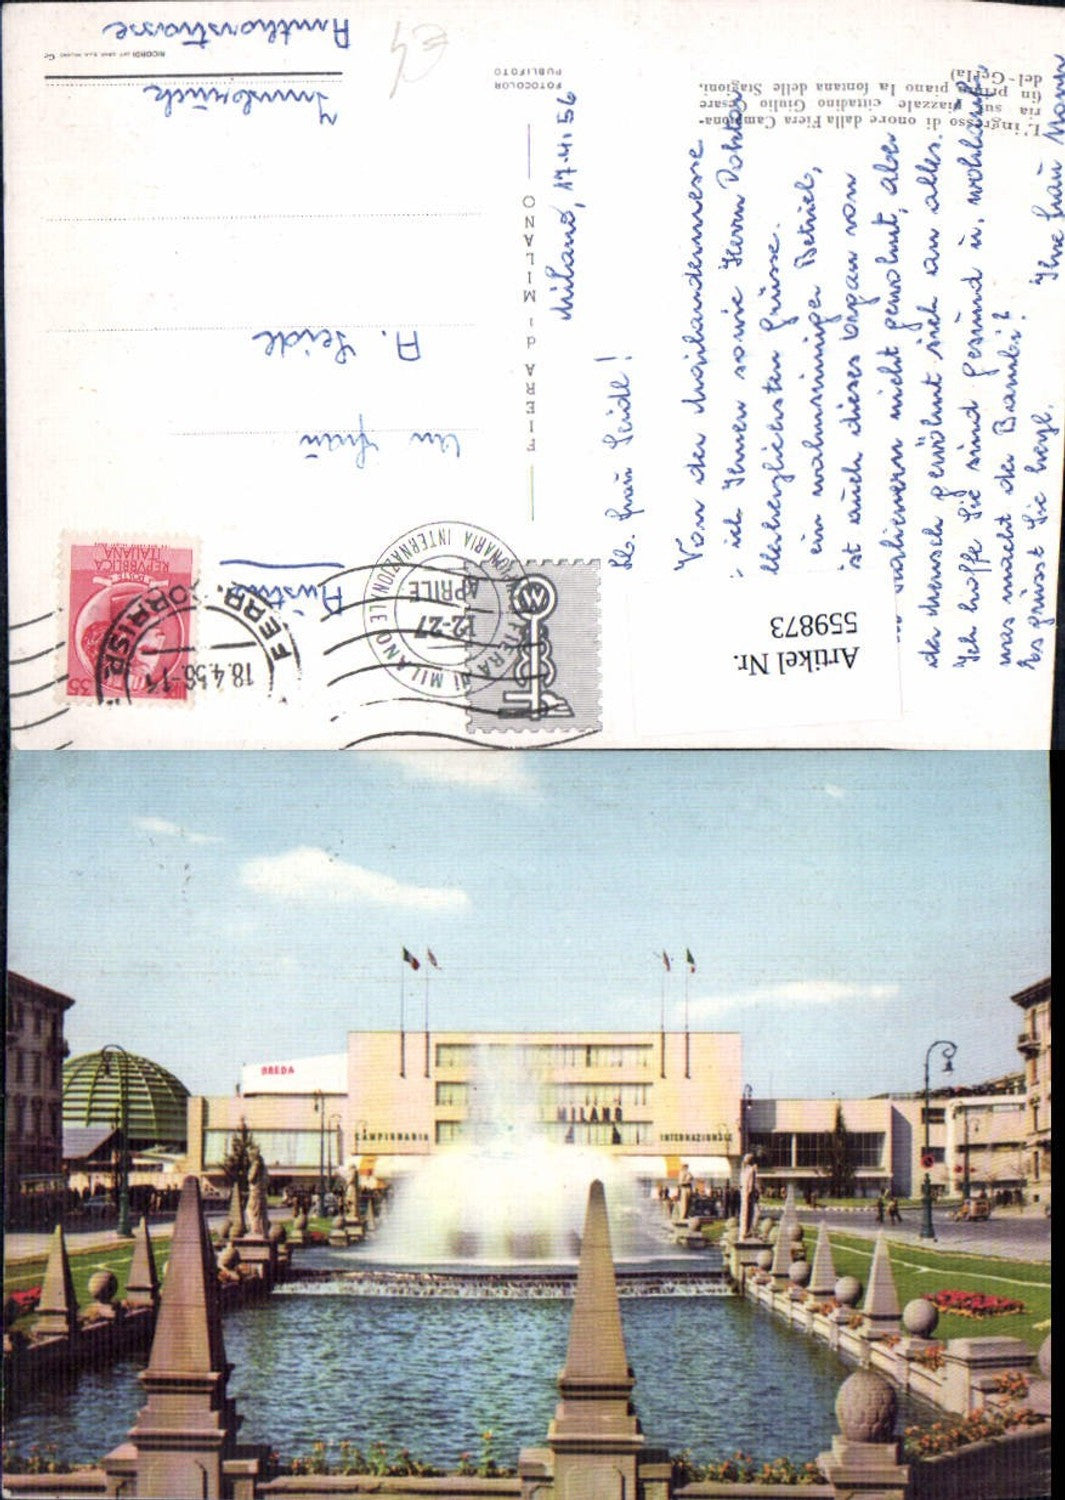 L'ingresso di onore dalla Fiera Campiona-
ria sul piazzale cittadino Giulio Cesare
(in primo piano la fontana delle Stagioni,
del Gerla)
FOTOCOLOR
PUBLIFOTO
FIERA di MILANO
Milano, 17.4.56
Frau Seidl!
Von der Mailandermesse
ich Ihnen sowie Herrn Doktor
herzlichsten Grüsse.
ein wahnsinniger Betrieb,
ist auch dieses Organ von
Italienern nicht gewohnt, aber
der Mensch gewöhnt sich an alles.
Ich hoffe Sie sind gesund u. wohlauf,
was macht der Bambi?
Es grüsst Sie herzl. Ihre Frau
An Frau
A. Seidl
Innsbruck
Austria
REPVBBLICA
ITALIANA
POSTE
35
FIERA DI MILANO
CAMPIONARIA INTERNAZIONALE
12-27
APRILE
FERR. CORRISP.
18.4.56
Artikel Nr.
559873
BREDA
MILANO
CAMPIONARIA
INTERNAZIONALE